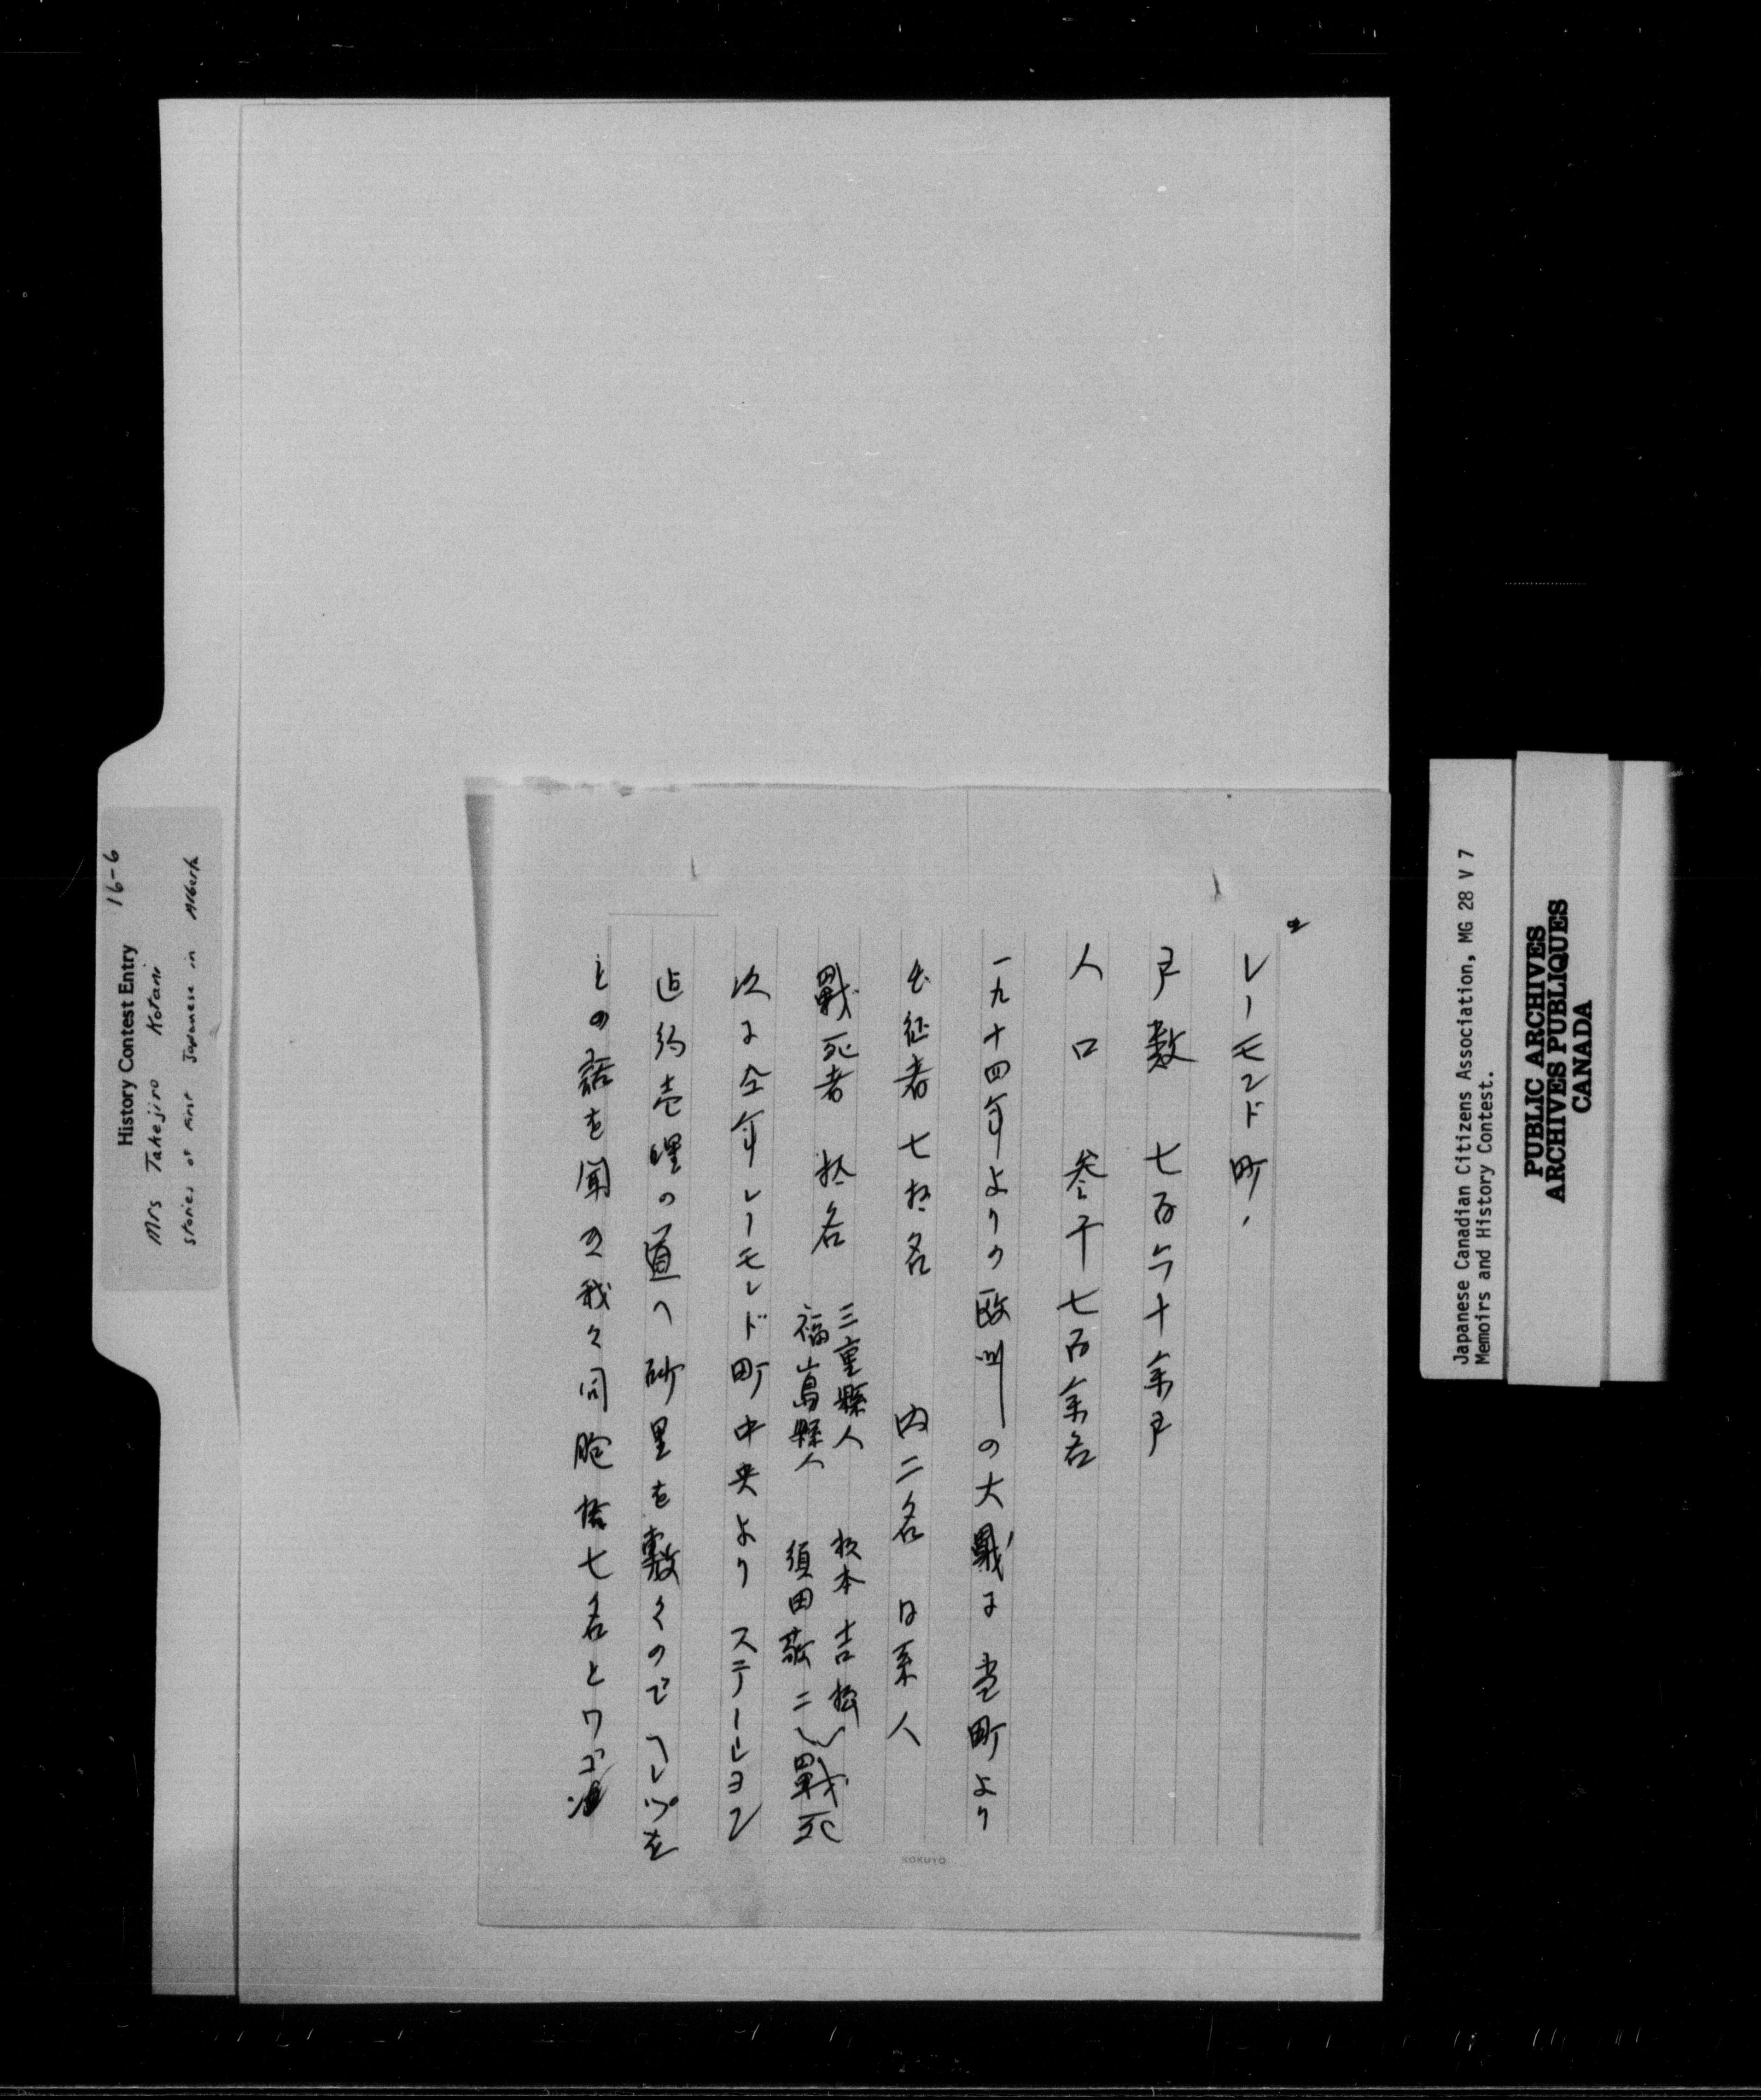 History Contest Entry 16-6
Mrs Takejiro Kotani
Stories of First Japanese in Alberta
レーモンド町、
戸数 七百六十余戸
人口 参千七百余名
一九十四年よりの欧州の大戦に当町より
出征者 七拾名 内二名 日系人
戦死者 拾名 三重縣人 松本吉松
福島縣人 須田敬二 戦死
次に仝年レーモンド町中央よりステーション
迄約壱哩の道へ砂里を敷くのでコレヅを
との話を聞き我々同胞拾七名とワゴン
KOKUYO
Japanese Canadian Citizens Association, MG 28 V 7
Memoirs and History Contest.
PUBLIC ARCHIVES
ARCHIVES PUBLIQUES
CANADA